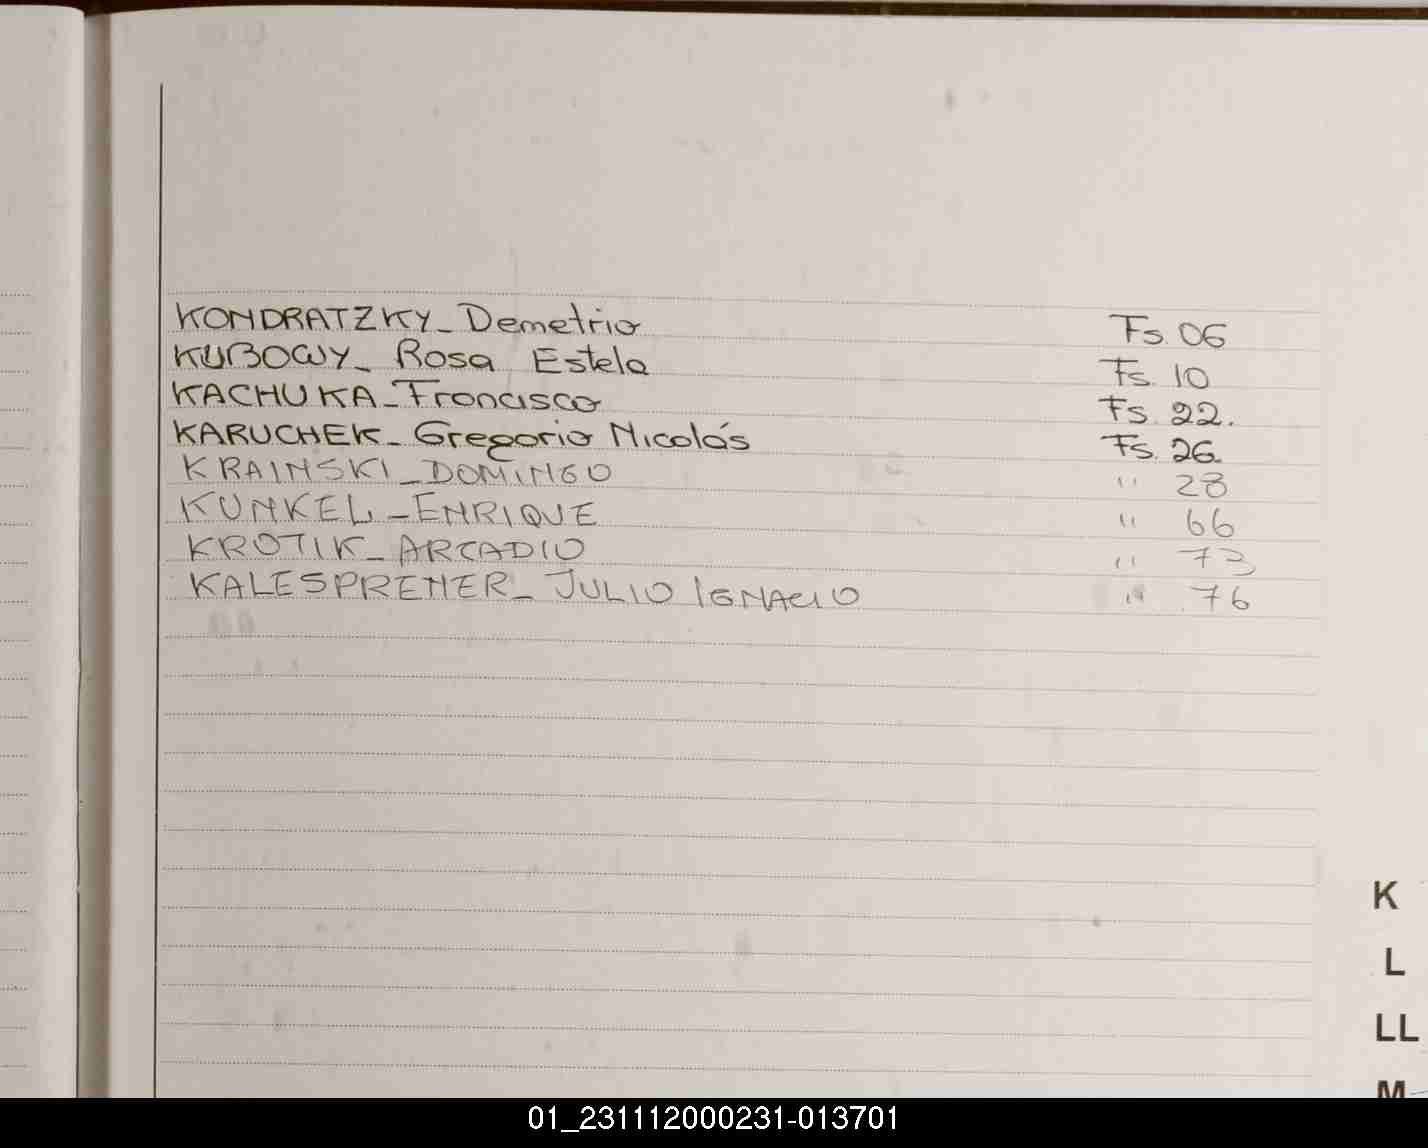 KONDRATZKY_ Demetrio Fs. 06
KUBOWY_ Rosa Estela Fs. 10
KACHUKA_ Francisco Fs. 22.
KARUCHEK_ Gregorio Nicolás Fs. 26.
KRAINSKI_ DOMINGO " 28
KUNKEL_ ENRIQUE " 66
KROTIK_ ARCADIO " 73
KALESPRENER_ JULIO IGNACIO " 76
K
L
LL
M
01_231112000231-013701